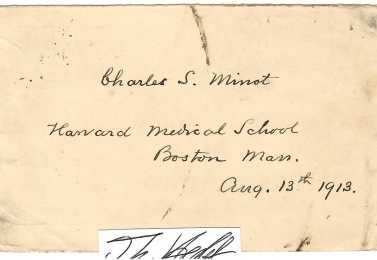 Charles S. Minot
Harvard Medical School
Boston Mass.
Aug. 13th 1913.
Th.